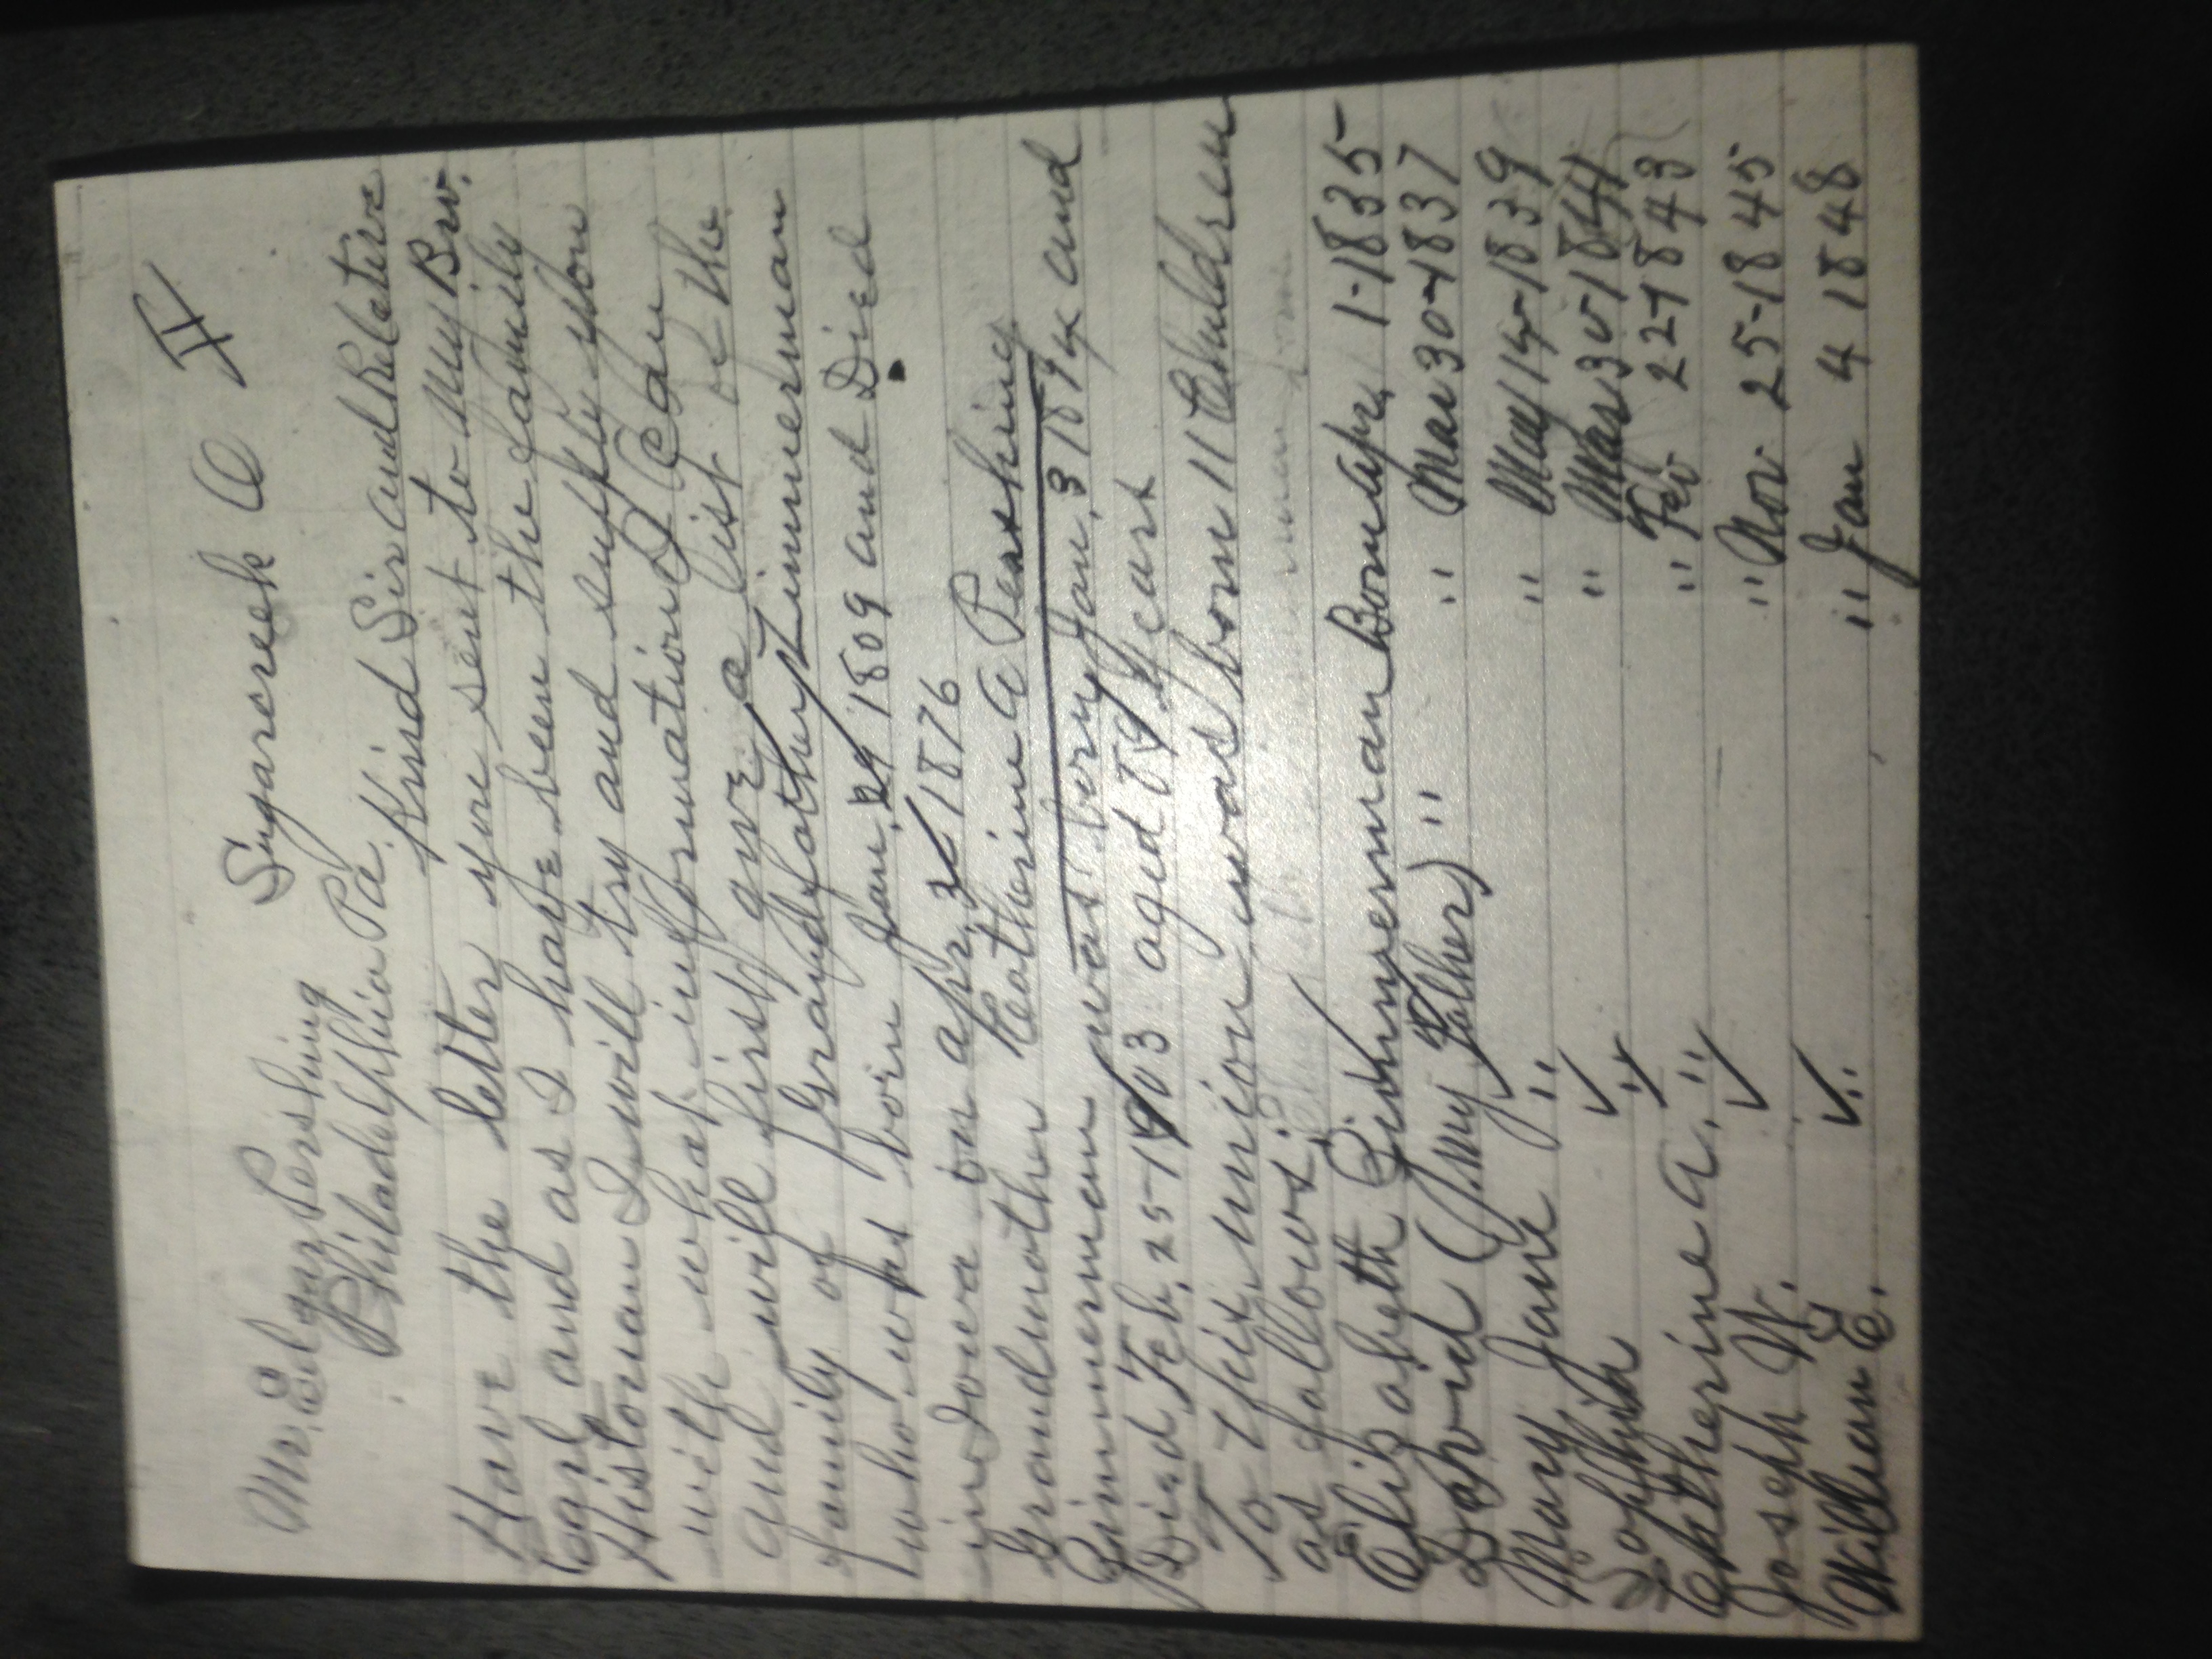 Sugarcreek O
Mr. Edgar Pershing
Philadelphia Pa.
Kind Sir and Relative
Have the letter you sent to My Bro.
Earl and as I have been the family
Historian I will try and supply you
with what information I can
and will first give a list of the
family of Grandfather Zimmerman
who was born Jan. 29 1809 and Died
in Iowa on apr. 1876
Grandmother Catherine A Pershing
Zimmerman was born Jan. 3 1814 and
Died Feb. 25-1903 aged 89 years
To this union was born 11 Children
as follows:
Elizabeth Zimmerman Born Apr. 1-1835
David (My Father) " " Mar 30-1837
Mary Jane " " May 14-1839
Sophia " " Mar 30-1841
Catherine A. " " Feb 22-1843
Joseph W. " " Nov 25-1845
William E. " " Jan 4 1848